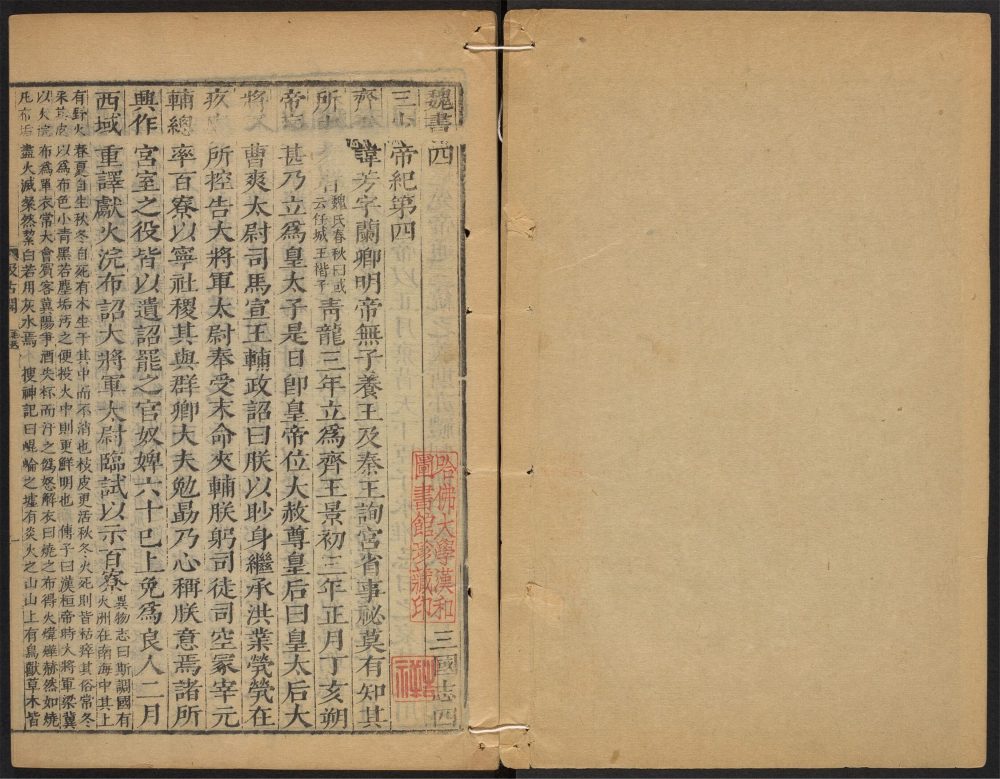 魏書四
三國志四
三少帝紀第四
齊王諱芳字蘭卿明帝無子養王及秦王詢宮省事祕莫有知其
所由者魏氏春秋曰或
云任城王楷子青龍三年立爲齊王景初三年正月丁亥朔
帝甚乃立爲皇太子是日卽皇帝位大赦尊皇后曰皇太后大
將曹爽太尉司馬宣王輔政詔曰朕以眇身繼承洪業煢煢在
疚所控告大將軍太尉奉受末命夾輔朕躬司徒司空冢宰元
輔總率百寮以寧社稷其與群卿大夫勉勗乃心稱朕意焉諸所
興作宮室之役皆以遺詔罷之官奴婢六十已上免爲良人二月
西域重譯獻火浣布詔大將軍太尉臨試以示百寮異物志曰斯調國有
火洲在南海中其上
有野火春夏自生秋冬自死有木生于其中而不消也枝皮更活秋冬火死則皆枯瘁其俗常冬
采其皮以爲布色小青黑若塵垢汚之便投火中則更鮮明也 傅子曰漢桓帝時大將軍梁冀
以火浣布爲單衣常大會賓客冀陽爭酒失杯而汙之僞怒解衣曰燒之布得火煒燁赫然如燒
凡布垢盡火滅粲然絜白若用灰水焉 搜神記曰崐崘之墟有炎火之山山上有鳥獸草木皆
汲古閣
哈佛大學漢和
圖書館珍藏印